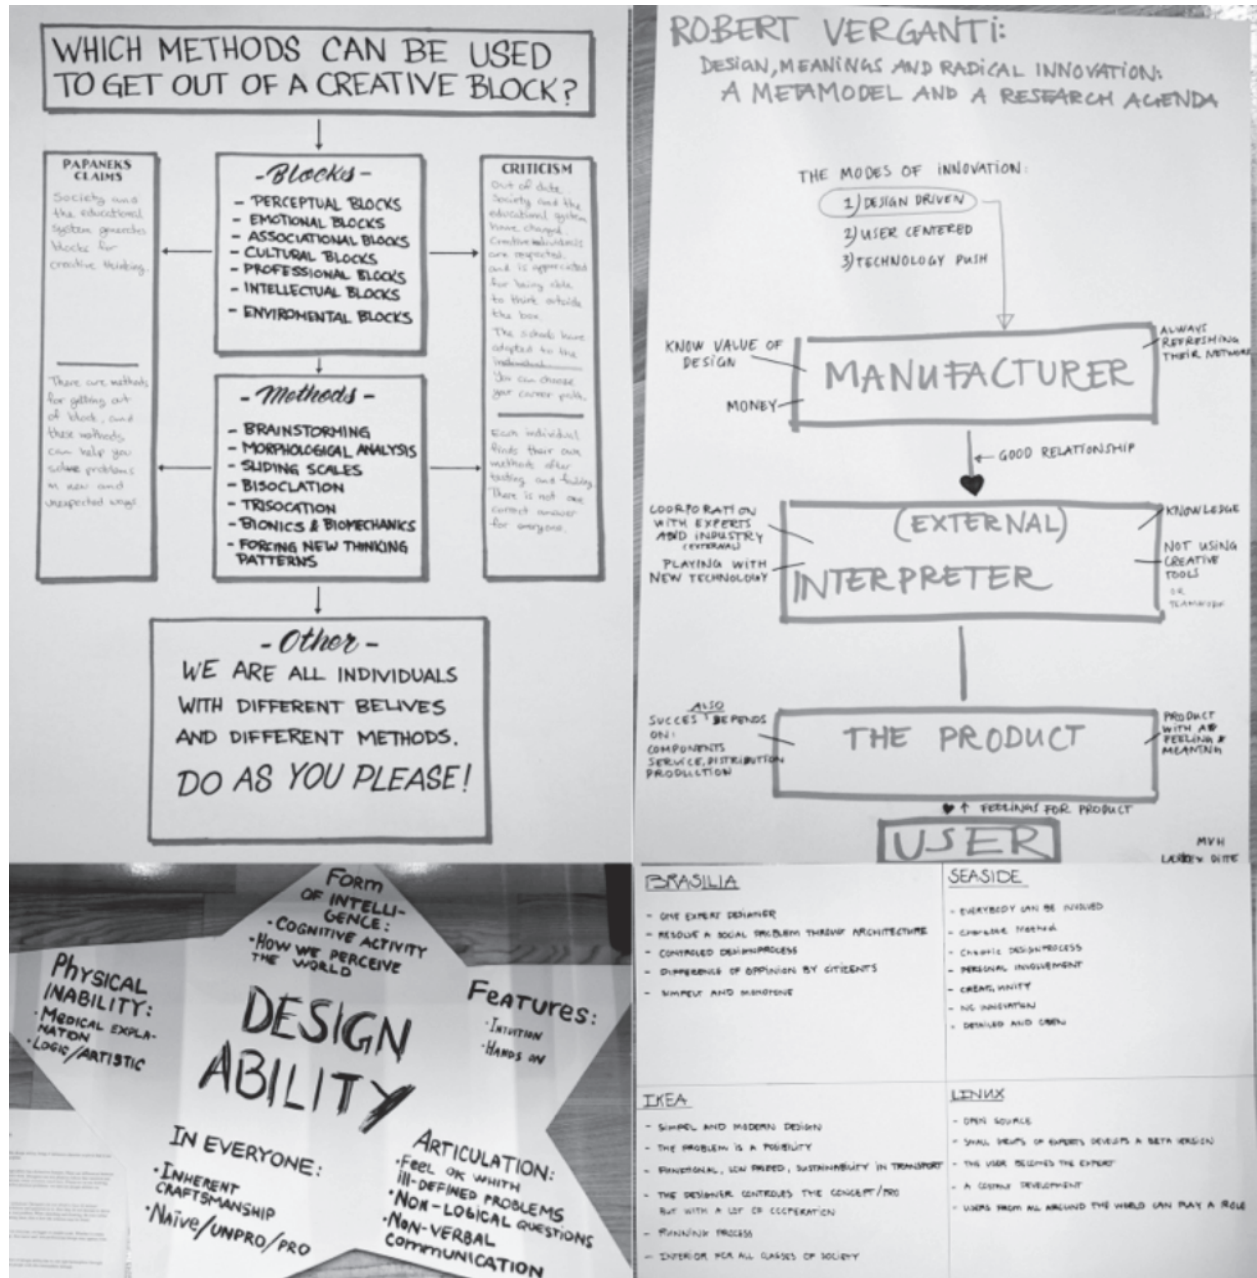 WHICH METHODS CAN BE USED
TO GET OUT OF A CREATIVE BLOCK?
PAPANEKS
CLAIMS
Society and
the educational
system generates
blocks for
creative thinking.
There are methods
for getting out
of block, and
these methods
can help you
solve problems
in new and
unexpected ways
- Blocks -
- PERCEPTUAL BLOCKS
- EMOTIONAL BLOCKS
- ASSOCIATIONAL BLOCKS
- CULTURAL BLOCKS
- PROFESSIONAL BLOCKS
- INTELLECTUAL BLOCKS
- ENVIROMENTAL BLOCKS
- Methods -
- BRAINSTORMING
- MORPHOLOGICAL ANALYSIS
- SLIDING SCALES
- BISOCLATION
- TRISOCATION
- BIONICS & BIOMECHANKS
- FORCING NEW THINKING
PATTERNS
CRITICISM
Out of date.
Society and the
educational system
have changed.
Creative individuals
are respected,
and is appreciated
for being able
to think outside
the box.
The schools have
adapted to the
You can choose
your career path.
Each individual
finds their own
methods after
testing and failing.
There is not one
correct answer
for everyone.
- Other -
WE ARE ALL INDIVIDUALS
WITH DIFFERENT BELIVES
AND DIFFERENT METHODS.
DO AS YOU PLEASE!
ROBERT VERGANTI:
DESIGN, MEANINGS AND RADICAL INNOVATION:
A METAMODEL AND A RESEARCH AGENDA
THE MODES OF INNOVATION:
1) DESIGN DRIVEN
2) USER CENTERED
3) TECHNOLOGY PUSH
KNOW VALUE OF
DESIGN
MONEY
MANUFACTURER
ALWAYS
REFRESHING
THEIR NETWORK
GOOD RELATIONSHIP
COORPORATION
WITH EXPERTS
AND INDUSTRY
(EXTERNAL)
PLAYING WITH
NEW TECHNOLOGY
(EXTERNAL)
INTERPRETER
KNOWLEDGE
NOT USING
CREATIVE
TOOLS
OR
TEAMWORK
ALSO
SUCCES DEPENDS
ON:
COMPONENTS
SERVICE, DISTRIBUTION
PRODUCTION
THE PRODUCT
PRODUCT
WITH
FEELING &
MEANING
FEELINGS FOR PRODUCT
USER
MVH
DITTE
FORM
OF INTELLI-
GENCE:
• COGNITIVE ACTIVITY
• HOW WE PERCEIVE
THE WORLD
PHYSICAL
INABILITY:
• MEDICAL EXPLA-
NATION
• LOGIC/ARTISTIC
DESIGN
ABILITY
FEATURES:
• INTUITION
• HANDS ON
IN EVERYONE:
• INHERENT
CRAFTSMANSHIP
• NAÏVE/UNPRO/PRO
ARTICULATION:
• FEEL OK WHITH
ill-DEFINED PROBLEMS
• NON-LOGICAL QUESTIONS
• NON-VERBAL
COMMUNICATION
BRASILIA
- ONE EXPERT DESIGNER
- RESOLVE A SOCIAL PROBLEM THROUGH ARCHITECTURE
- CONTROLED DESIGNPROCESS
- DIFFERENCE OF OPPINION BY CITICENTS
- SIMPELT AND MONOTONE
SEASIDE
- EVERYBODY CAN BE INVOLVED
- Charette Method
- CHAOTIC DESIGNPROCESS
- PERSONAL INVOLVEMENT
- UNITY
- NO INNOVATION
- DETAILED AND OPEN
IKEA
- SIMPEL AND MODERN DESIGN
- THE PROBLEM IS A POSIBILITY
- FUNCTIONAL, LOW PRICED, SUSTAINABILITY IN TRANSPORT
- THE DESIGNER CONTROLES THE CONCEPT/PRO
BUT WITH A LOT OF COOPERATION
- RUNNING PROCESS
- INTERIOR FOR ALL CLASSES OF SOCIETY
LINUX
- OPEN SOURCE
- SMALL OF EXPERTS DEVELOPS A BETA VERSION
- THE USER BECOMES THE EXPERT
- A DEVELOPMENT
- USERS FROM ALL AROUND THE WORLD CAN PLAY A ROLE